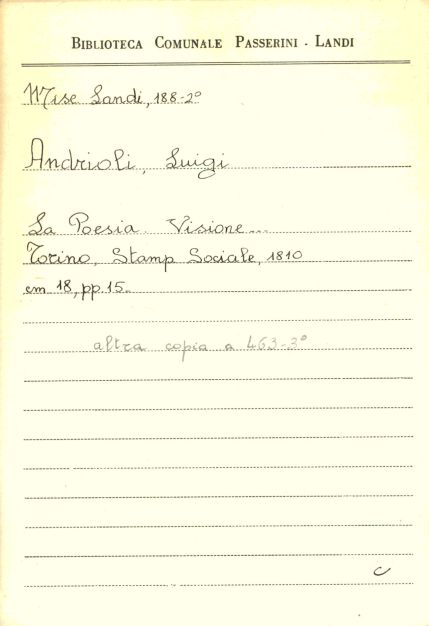 BIBLIOTECA COMUNALE PASSERINI - LANDI
Misc Landi, 188-2º
Andrioli, Luigi
La Poesia. Visione...
Torino, Stamp Sociale, 1810
cm 18, pp. 15.
altra copia a 463-3º
C